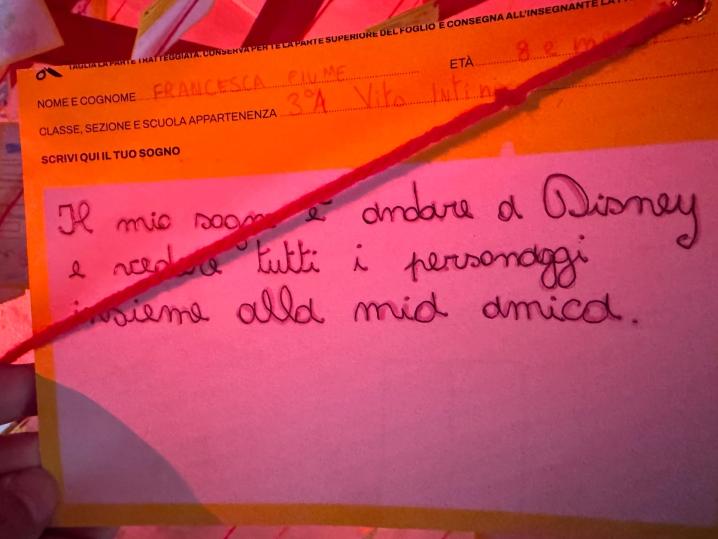 TAGLIA LA PARTE TRATTEGGIATA, CONSERVA PER TE LA PARTE SUPERIORE DEL FOGLIO E CONSEGNA ALL'INSEGNANTE LA
NOME E COGNOME FRANCESCA FIUME ETÀ 8 e
CLASSE, SEZIONE E SCUOLA APPARTENENZA 3°A Vito Intini
SCRIVI QUI IL TUO SOGNO
Il mio sogno è andare a Disney
e vedere tutti i personaggi
insieme alla mia amica.